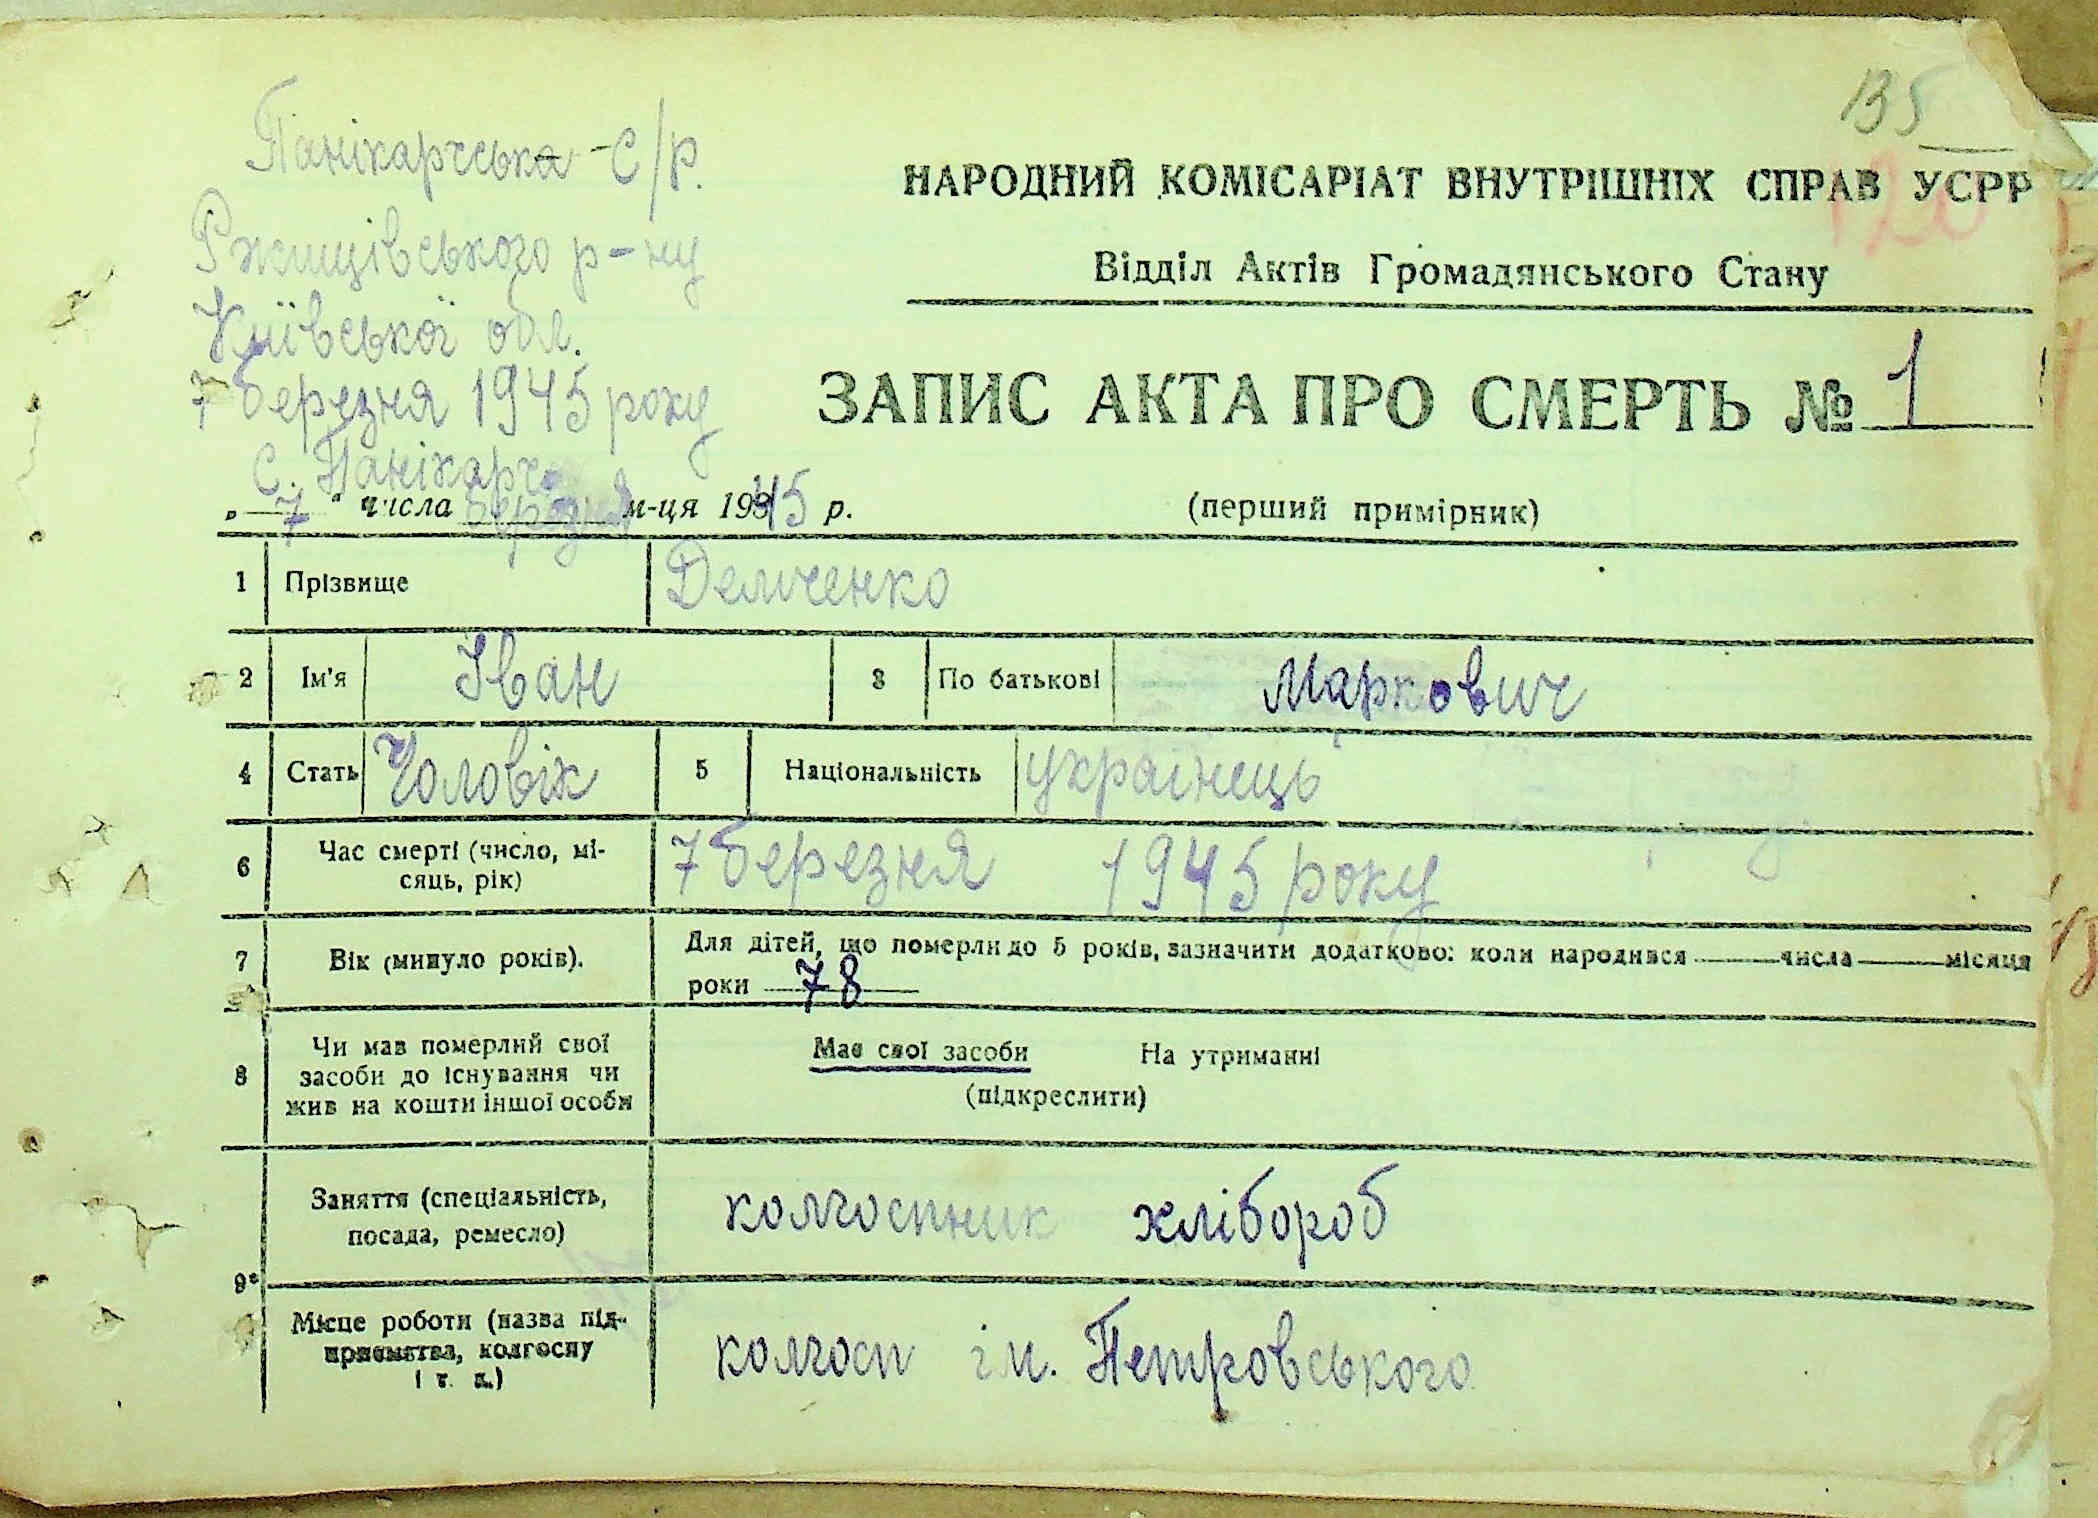 135
Панікарчська с/р.
Ржищівського р-ну
Київської обл.
7 березня 1945 року
с. Панікарча
120
НАРОДНИЙ КОМІСАРІАТ ВНУТРІШНІХ СПРАВ УСРР
Відділ Актів Громадянського Стану
ЗАПИС АКТА ПРО СМЕРТЬ № 1
„ 7 " числа березня м-ця 1945 р.
(перший примірник)
1 Прізвище Демченко
2 Ім'я Іван 3 По батькові Маркович
4 Стать Чоловік 5 Національність українець
6 Час смерті (число, мі-
сяць, рік) 7 березня 1945 року
7 Вік (минуло років). Для дітей, що померли до 5 років, зазначити додатково: коли народився числа місяця
роки 78
8 Чи мав померлий свої
засоби до існування чи
жив на кошти іншої особи
Має свої засоби На утриманні
(підкреслити)
9 Заняття (спеціальність,
посада, ремесло) колгоспник хлібороб
Місце роботи (назва під-
приємства, колгоспу
і т. д.) колгосп ім. Петровського